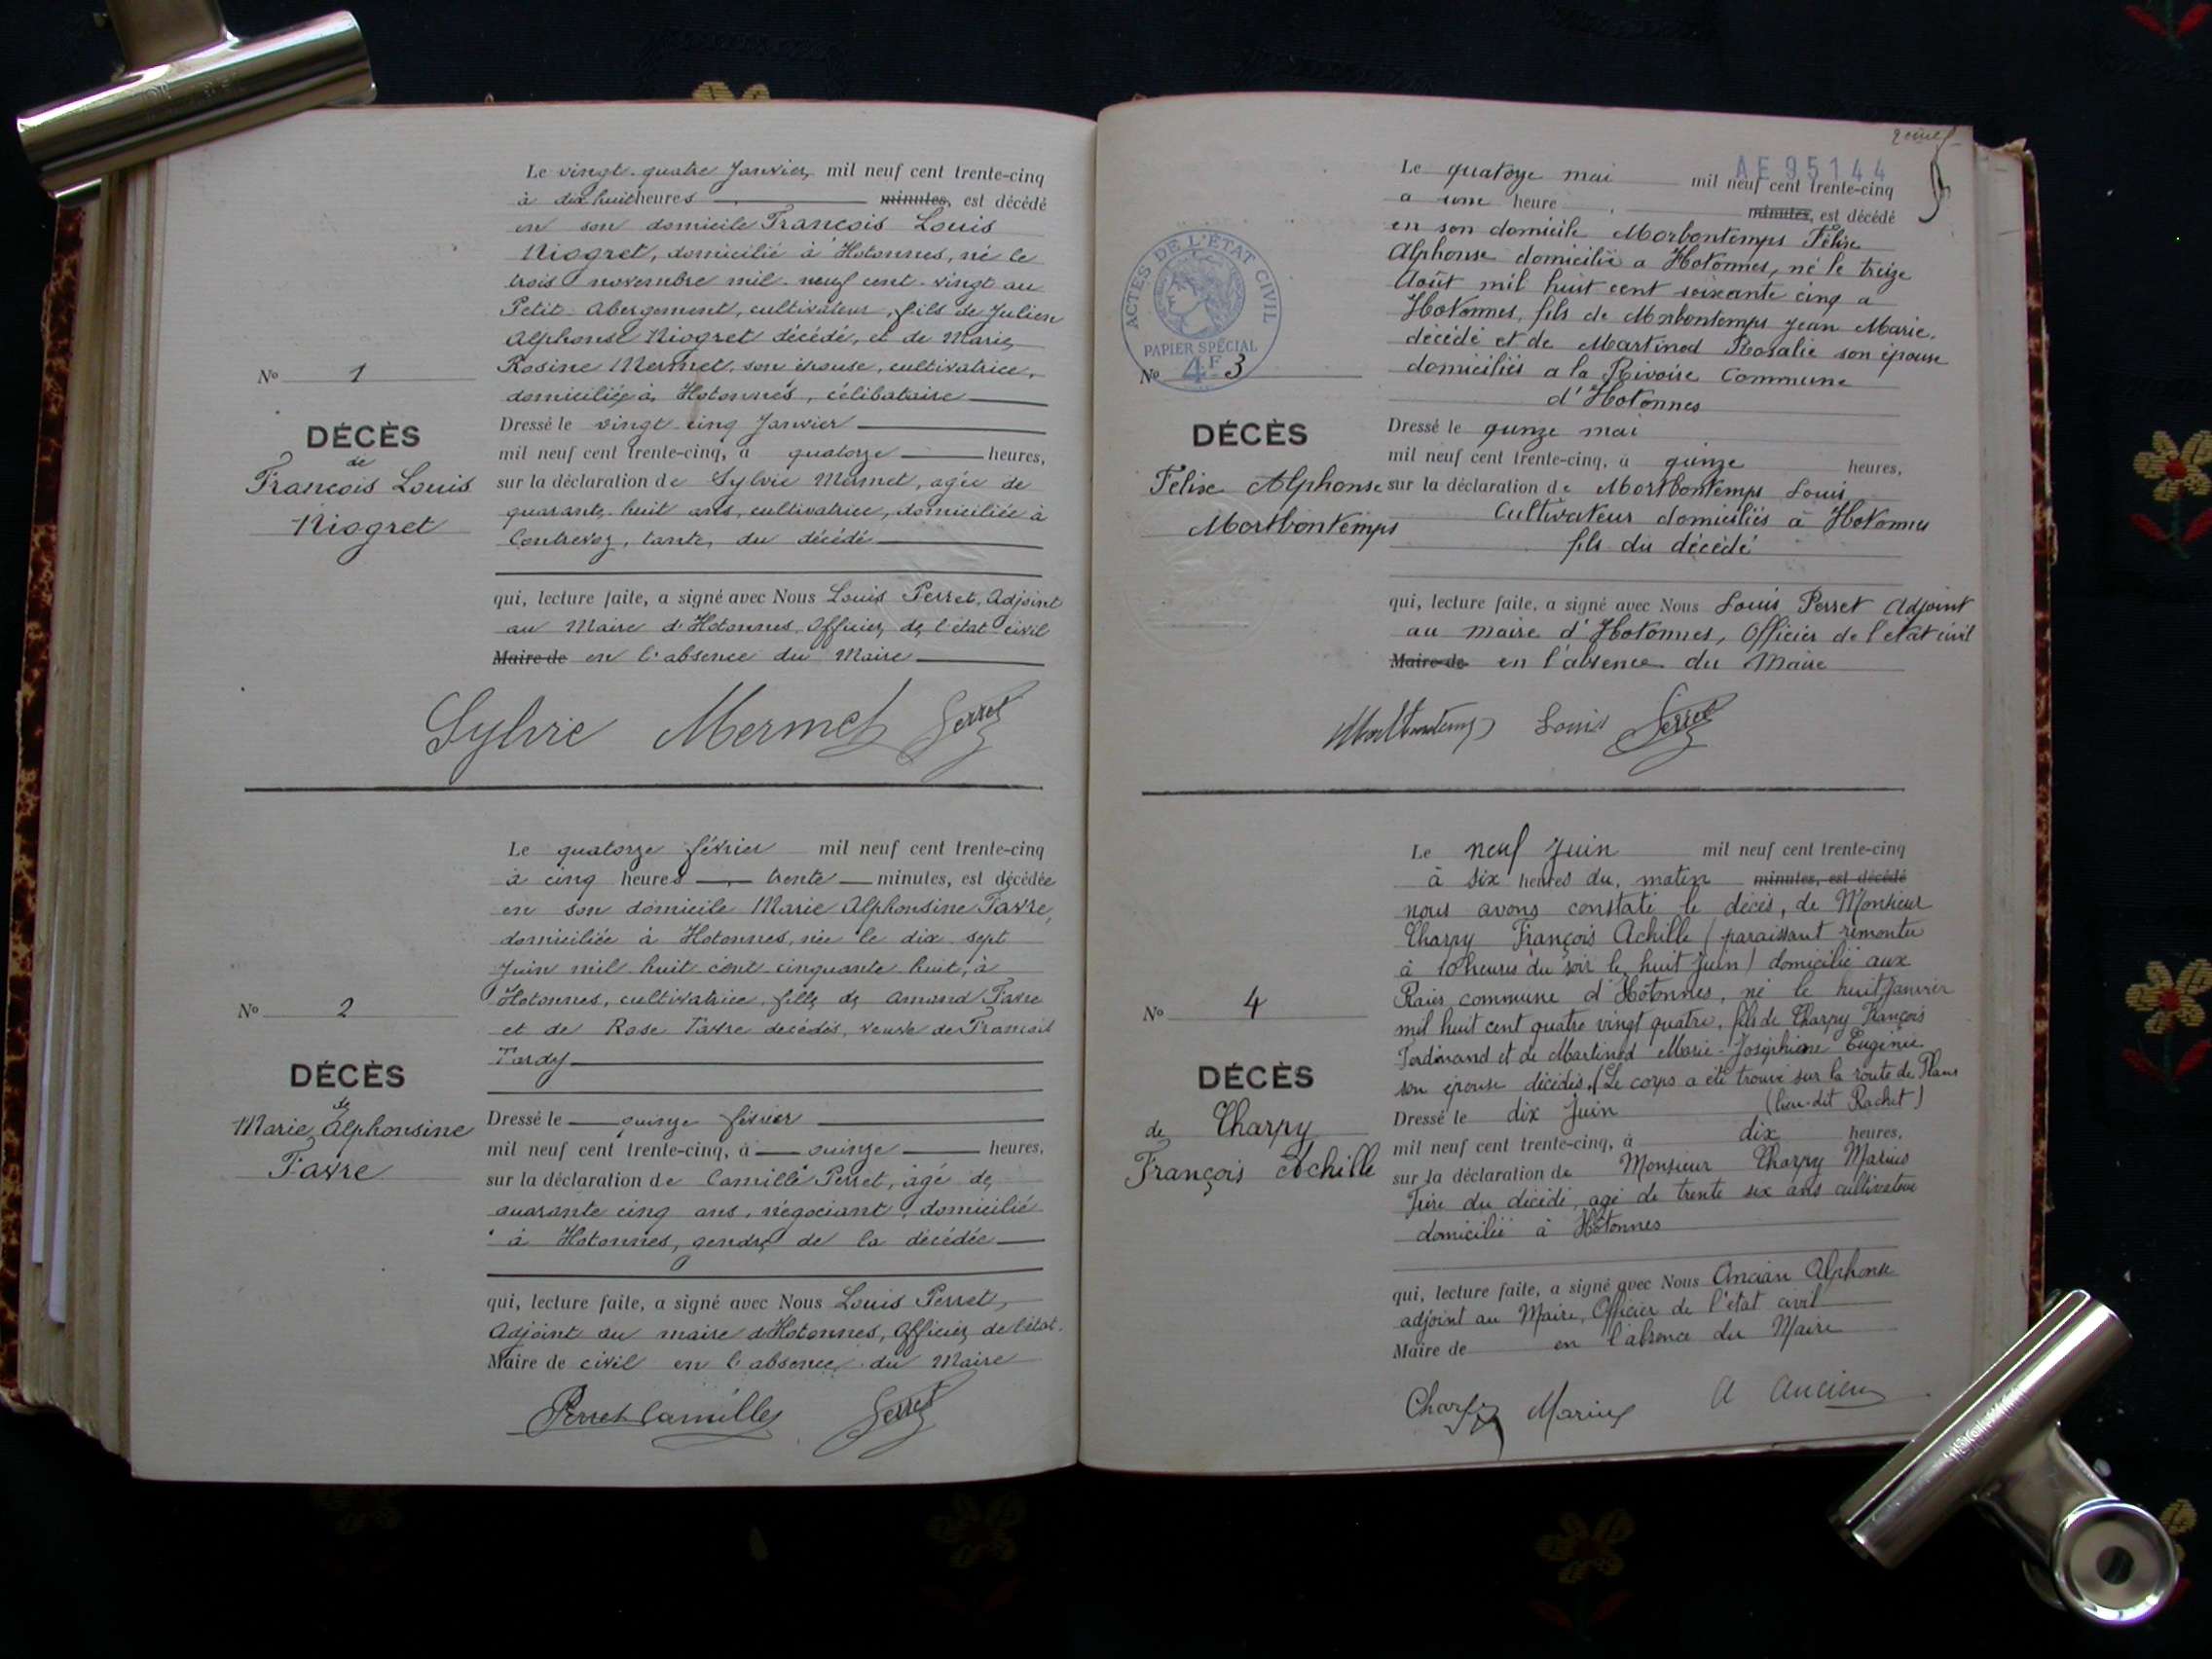 Le vingt-quatre Janvier, mil neuf cent trente-cinq
à dix huit heures minutes, est décédé
en son domicile François Louis
Niogret, domicilié à Hotonnes, né le
trois novembre mil neuf cent vingt au
Petit Abergement, cultivateur, fils de Julien
Alphonse Niogret décédé, et de Marie
Rosine Mermet, son épouse, cultivatrice,
domiciliée à Hotonnes, célibataire
Nº 1
DÉCÈS
de
François Louis
Niogret
Dressé le vingt-cinq Janvier
mil neuf cent trente-cinq, à quatorze heures,
sur la déclaration de Sylvie Mermet, agée de
quarante-huit ans, cultivatrice, domiciliée à
Contrevoz, tante du décédé
qui, lecture faite, a signé avec Nous Louis Perret, Adjoint
au Maire d'Hotonnes, Officier de l'état civil
Maire de en l'absence du Maire
Sylvie Mermet Perret
Le quatorze février mil neuf cent trente-cinq
à cinq heures trente minutes, est décédée
en son domicile Marie Alphonsine Favre,
domiciliée à Hotonnes, née le dix sept
Juin mil huit cent cinquante huit, à
Hotonnes, cultivatrice, fille de Amand Favre
et de Rose Favre décédés, veuve de François
Tardy
Nº 2
DÉCÈS
de
Marie Alphonsine
Favre
Dressé le quinze février
mil neuf cent trente-cinq, à quinze heures,
sur la déclaration de Camille Perret, agé de
quarante cinq ans, négociant, domicilié
à Hotonnes, gendre de la décédée
qui, lecture faite, a signé avec Nous Louis Perret,
Adjoint au maire d'Hotonnes, Officier de l'état
Maire de civil en l'absence du Maire
Perret Camille Perret
AE95144
Le quatorze mai mil neuf cent trente-cinq
a une heure minutes, est décédé
en son domicile Morbontemps Félix
Alphonse domicilié a Hotonnes, né le treize
Août mil huit cent soixante cinq a
Hotonnes, fils de Morbontemps Jean Marie,
décédé et de Martinod Rosalie son épouse
domiciliés a la Rivoire Commune
d'Hotonnes
ACTES DE L'ÉTAT CIVIL
PAPIER SPÉCIAL
4F
Nº 3
DÉCÈS
Félix Alphonse
Mortbontemps
Dressé le quinze mai
mil neuf cent trente-cinq, à quinze heures,
sur la déclaration de Mortbontemps Louis
Cultivateur domiciliés à Hotonnes
fils du décédé
qui, lecture faite, a signé avec Nous Louis Perret Adjoint
au maire d'Hotonnes, Officier de l'état civil
Maire de en l'absence du Maire
Mortbontemps Louis Perret
Le neuf Juin mil neuf cent trente-cinq
à six heures du matin minutes, est décédé
nous avons constaté le décès, de Monsieur
Charpy François Achille (paraissant remonter
à 10 heures du soir le huit Juin) domicilié aux
Plans commune d'Hotonnes, né le huit Janvier
mil huit cent quatre vingt quatre, fils de Charpy François
Ferdinand et de Martinod Marie-Joséphine Eugénie
son épouse décédés. (Le corps a été trouvé sur la route de Plans
(lieu-dit Rachet)
Nº 4
DÉCÈS
de Charpy
François Achille
Dressé le dix Juin
mil neuf cent trente-cinq, à dix heures,
sur la déclaration de Monsieur Charpy Marius
Frère du décédé, agé de trente six ans cultivateur
domicilié à Hotonnes
qui, lecture faite, a signé avec Nous Ancian Alphonse
adjoint au Maire, Officier de l'état civil
Maire de en l'absence du Maire
Charpy Marius A Ancian